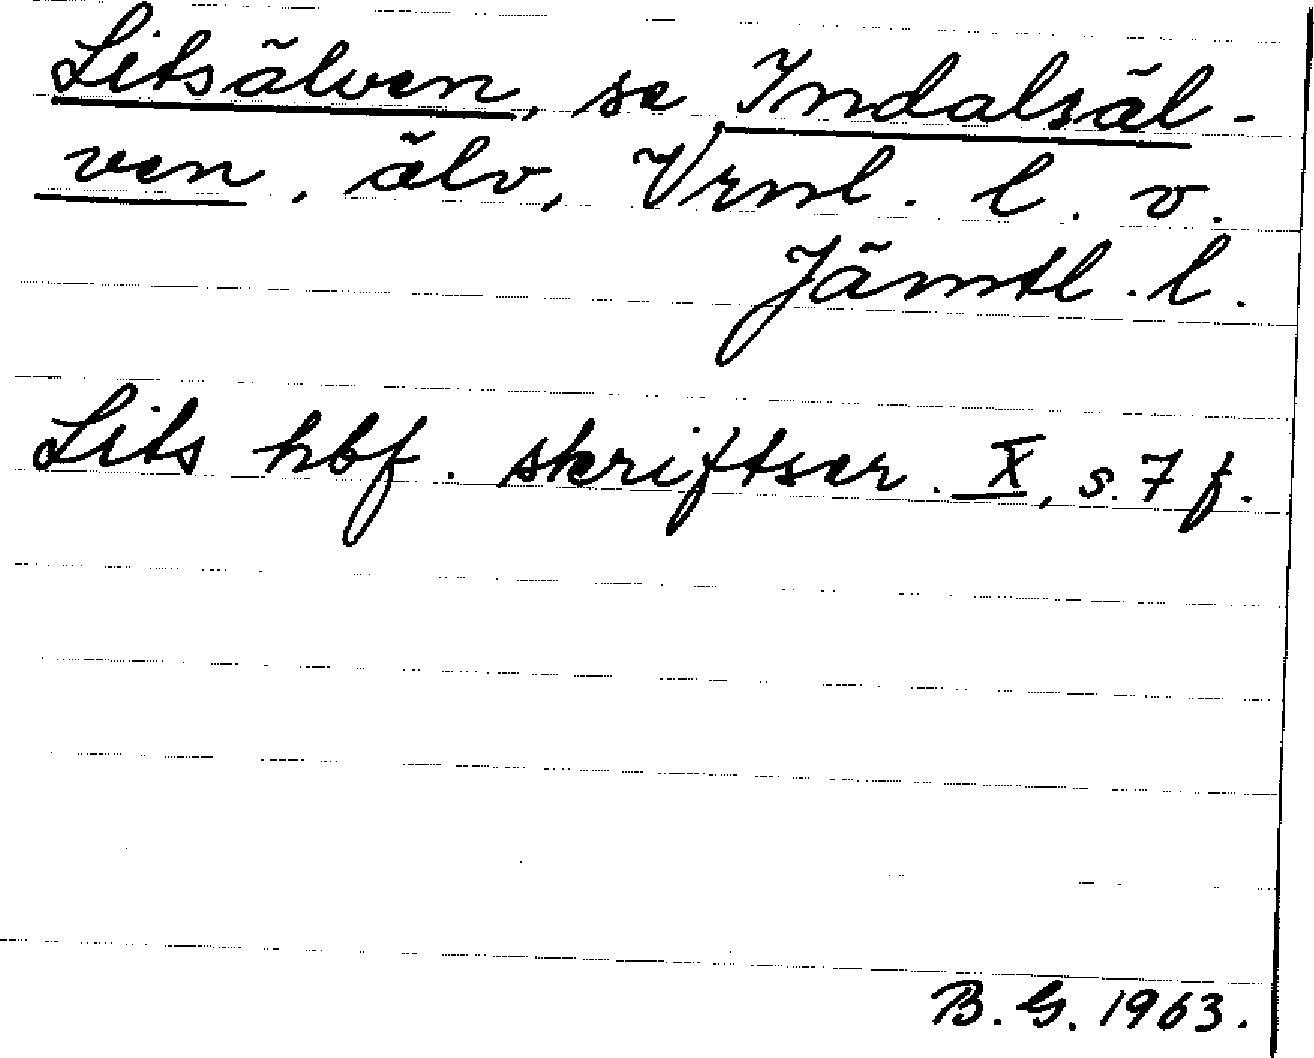 Litsälven, se Indalsäl-
ven. älv, Vrml. l. v.
Jämtl. l.
Lits hbf. skriftser. X, s. 7 f.
B. G. 1963.